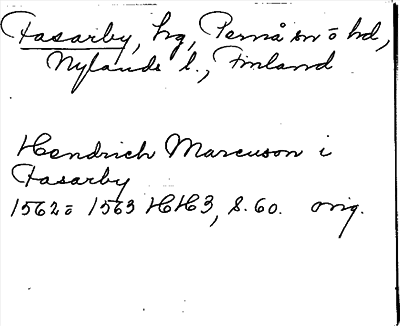 Fasarby, hg, Pernå sn o hd,
Nylands l., Finland
Hendrich Marcuson i
Fasarby
1562 o 1563 HH3, s. 60. orig.